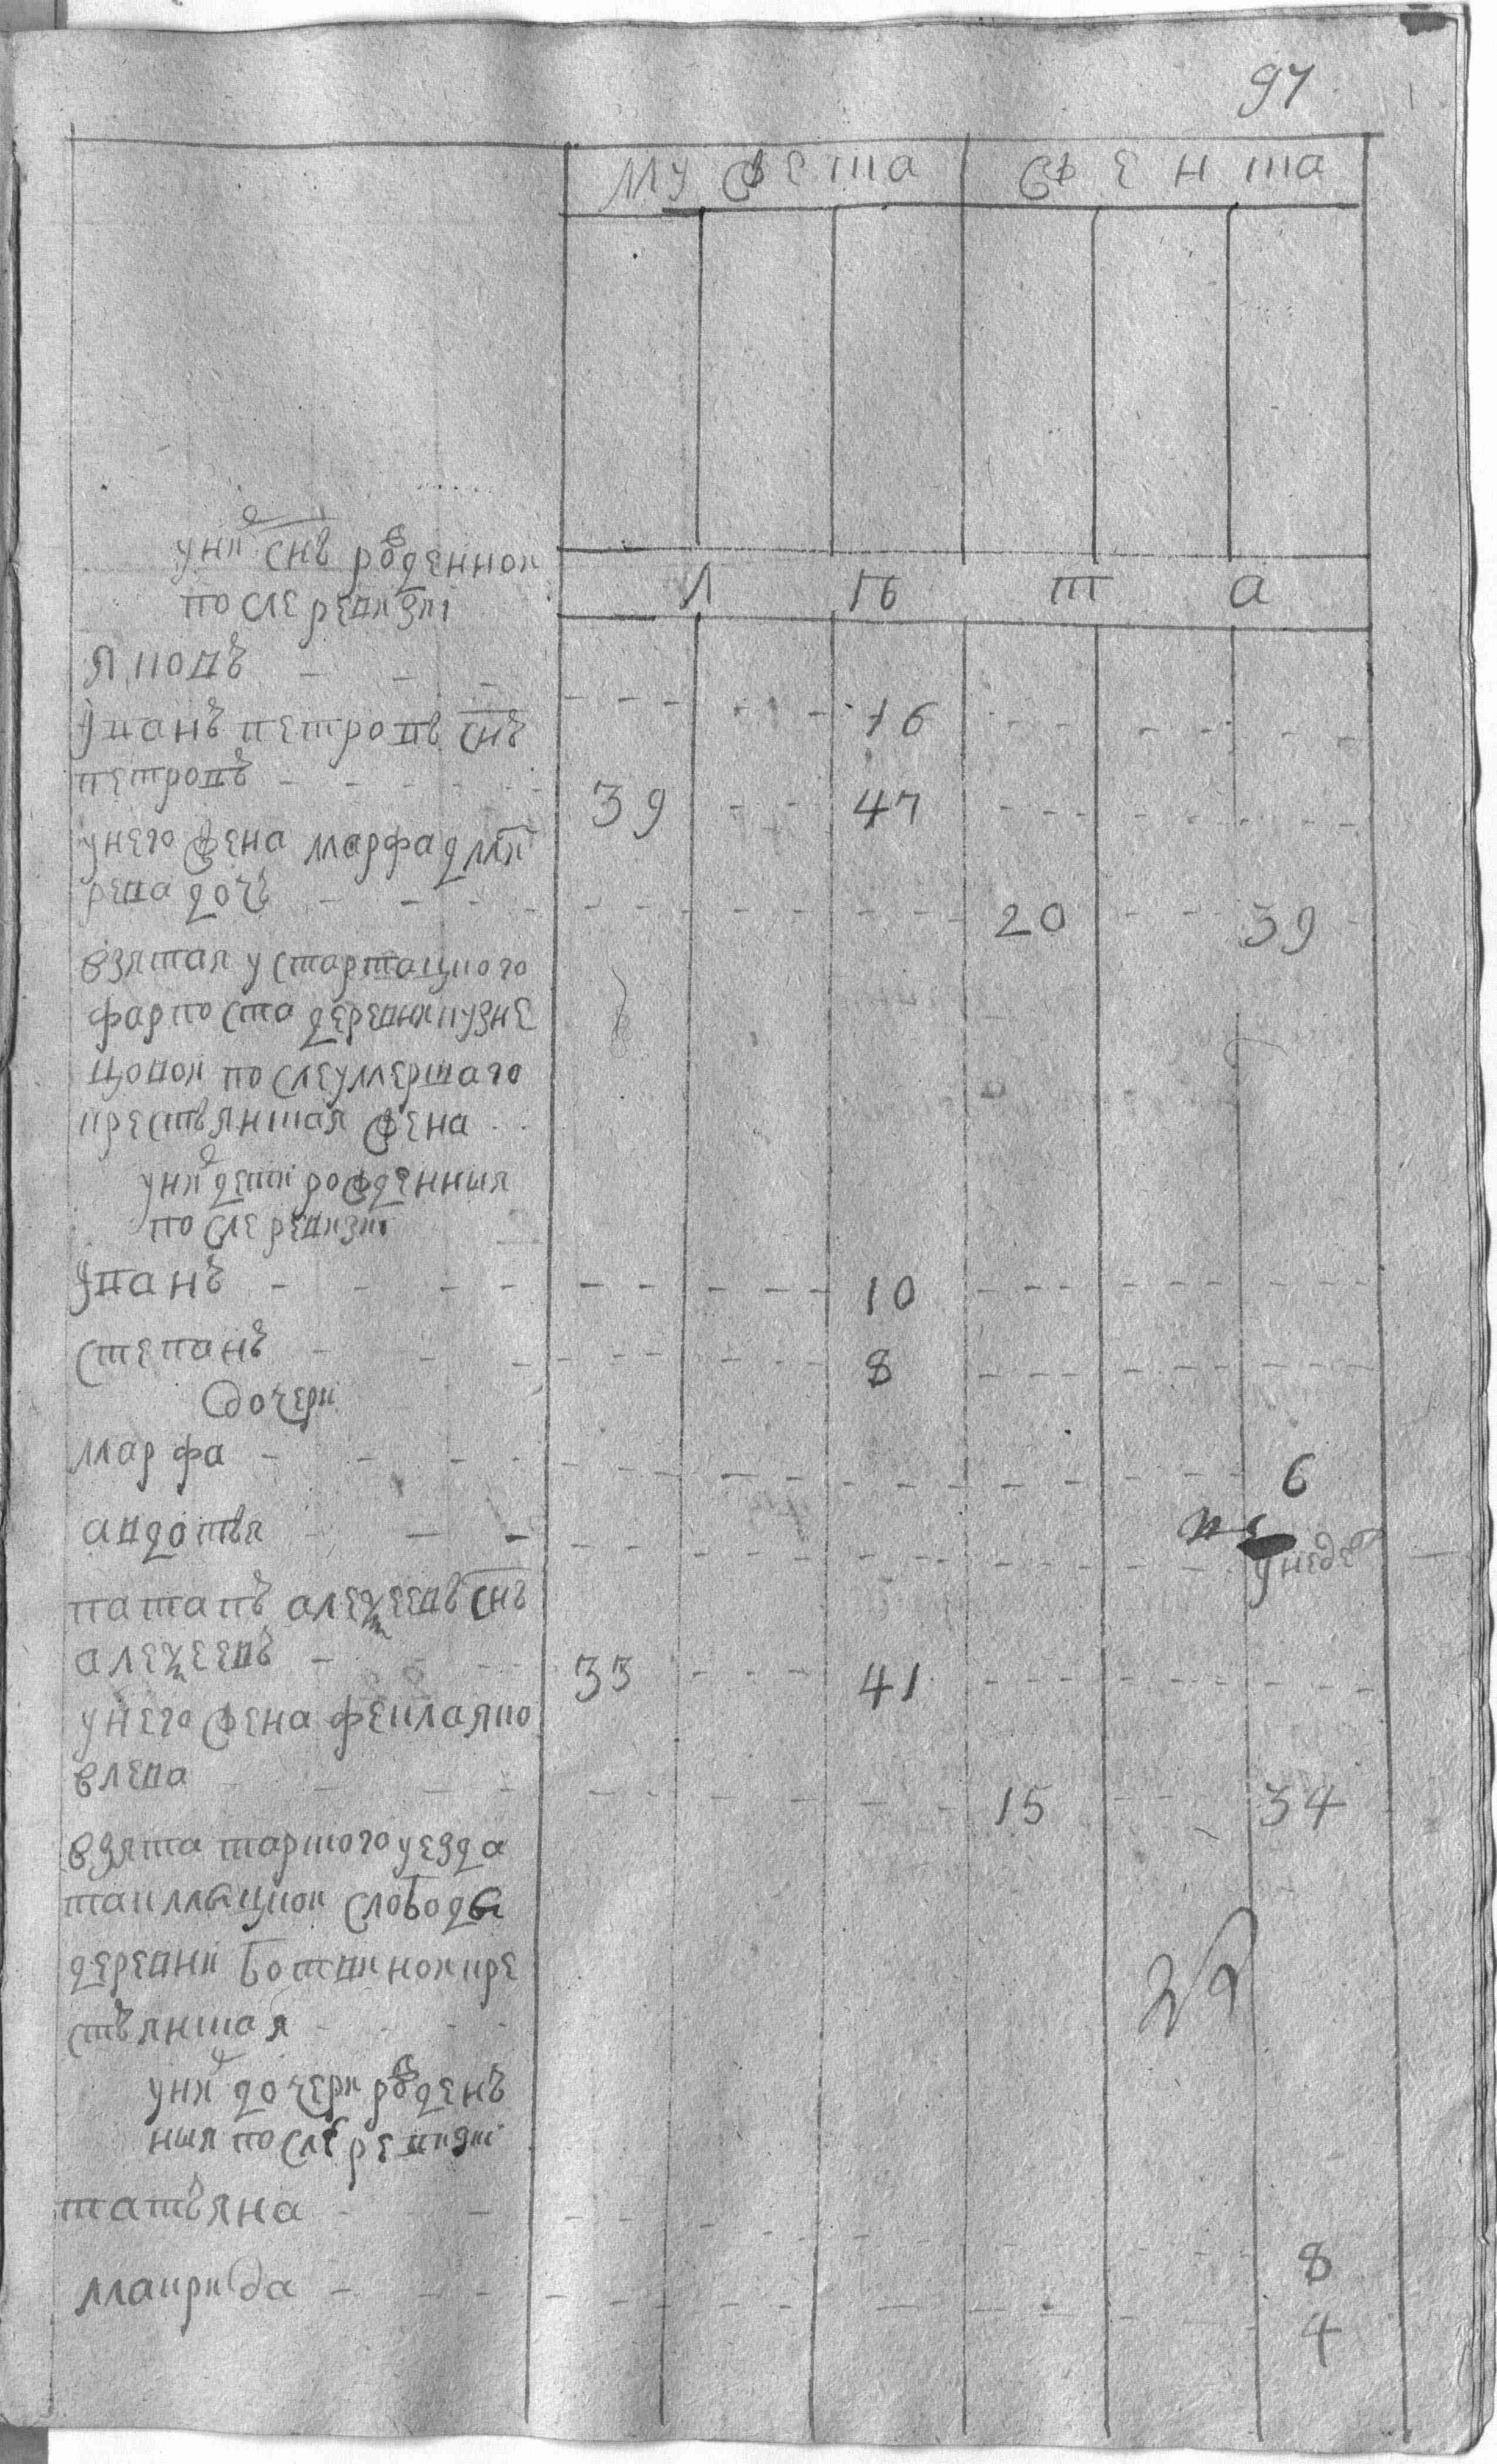 97
мужеска женска
у них снъ рожденной
после ревизиі
яковъ - - - 16
Иванъ петровъ снъ
петровъ - - - 39 - - 47
у него жена марфа дми
рева дочь - - - 20 - - 39
взятая у стартацкого
фарпоста деревни кузне
цовой после умершаго
крестьянская жена
у них дети рожденныя
после ревизиі
Л Ѣ т а
Иванъ - - - 10
степанъ - - - 8
дочери
марфа - - - 6
авдотья - - - не
патапъ алеѯеевъ снъ
алеѯеевъ - - - 33 - - 41
у него жена феклаяко
влева - - - 15 - - 34
взята тарского уезда
таилмыцкой слободы
деревни ботвиной кре
стьянская
у них дочери рожденъ
ныя после ревизиі
татьяна - - - 8
маврида - - - 4